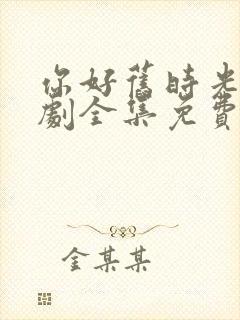 你好舊時光
劇全集免費
金某某